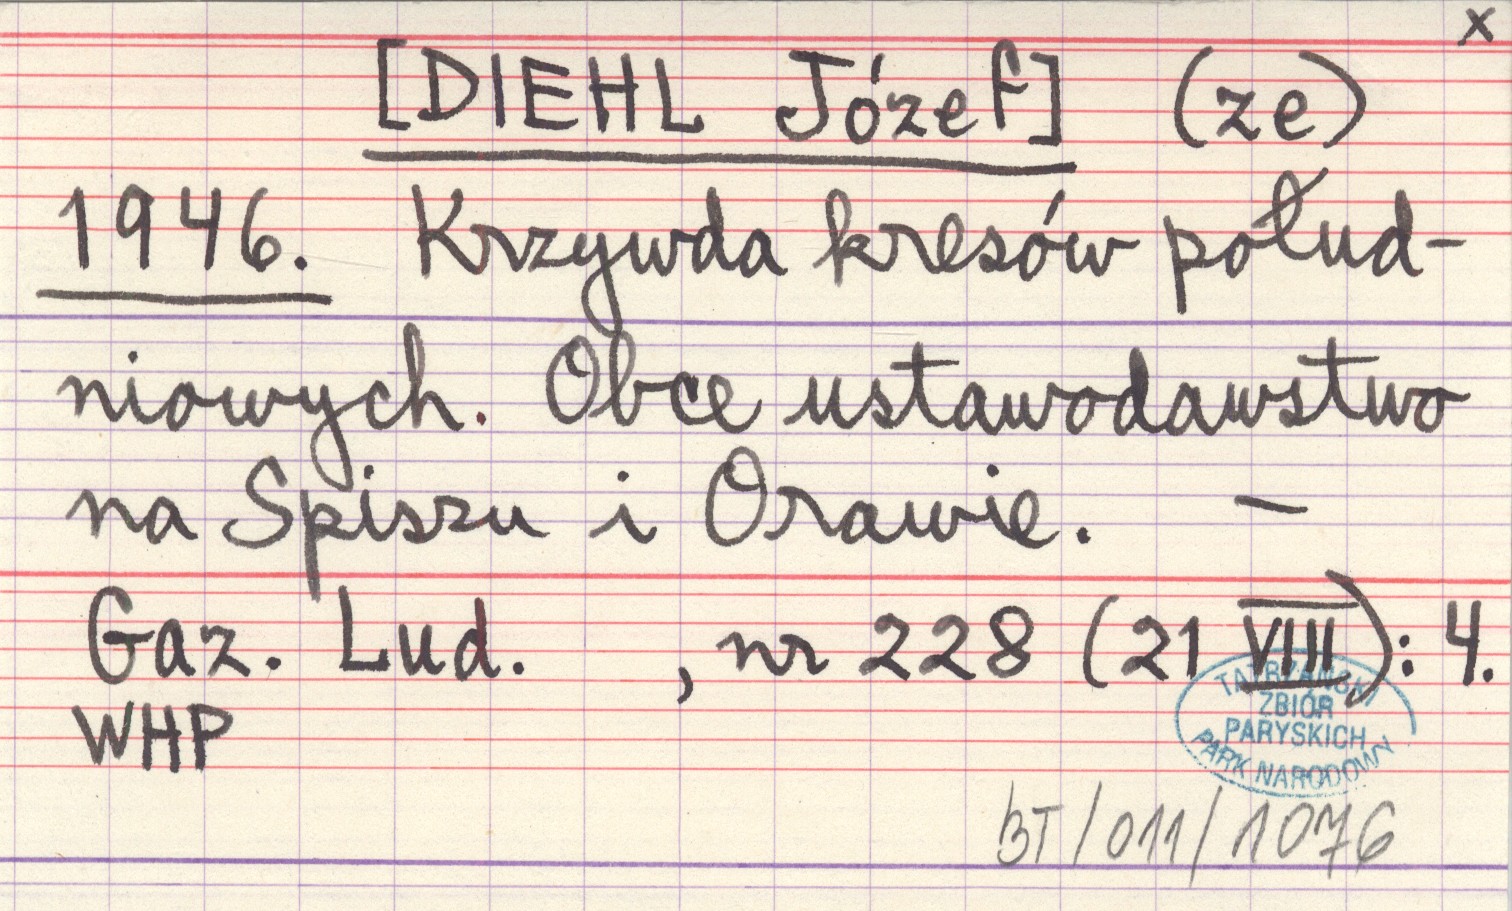 x
[DIEHL Józef] (ze)
1946. Krzywda kresów połud-
niowych. Obce ustawodawstwo
na Spiszu i Orawie. –
Gaz. Lud. , nr 228 (21 VIII): 4.
WHP
TATRZAŃSKI
ZBIÓR
PARYSKICH
PARK NARODOWY
BT/011/1076